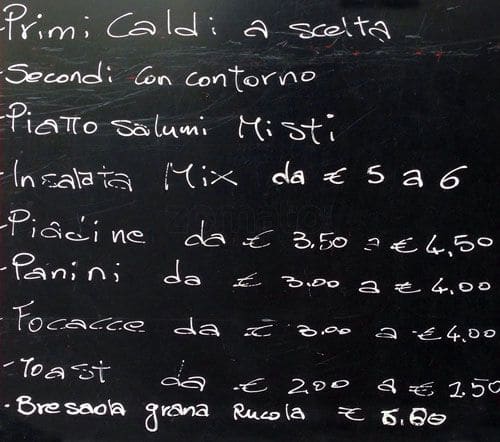 -Primi Caldi a scelta
-Secondi Con contorno
-Piatto salumi Misti
-Insalata Mix da € 5 a 6
-Piadine da € 3.50 a € 4,50
-Panini da € 3.00 a € 4.00
-Focacce da € 3.00 a € 4,00
-Toast da € 2.00 a € 2.50
•Bresaola grana Rucola €